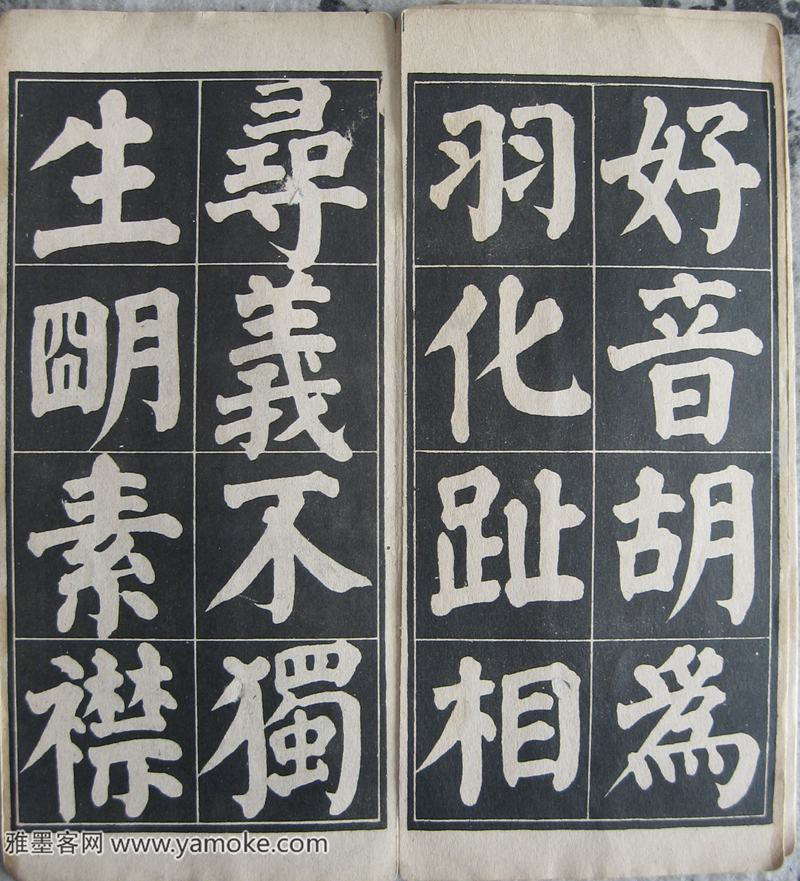 好音胡為
羽化趾相
尋義不獨
生朙素襟
雅墨客网 www.yamoke.com